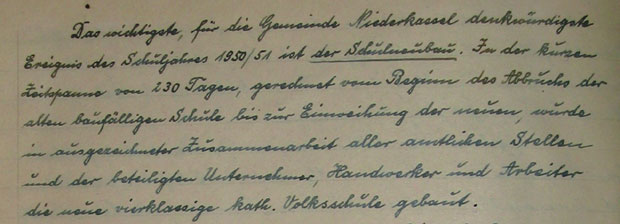 Das wichtigste, für die Gemeinde Niederkassel denkwürdigste
Ereignis des Schuljahres 1950/51 ist der Schulneubau. In der kurzen
Zeitspanne von 230 Tagen, gerechnet vom Beginn des Abbruchs der
alten baufälligen Schule bis zur Einweihung der neuen, wurde
in ausgezeichneter Zusammenarbeit aller amtlichen Stellen
und der beteiligten Unternehmer, Handwerker und Arbeiter
die neue vierklassige kath. Volksschule gebaut.